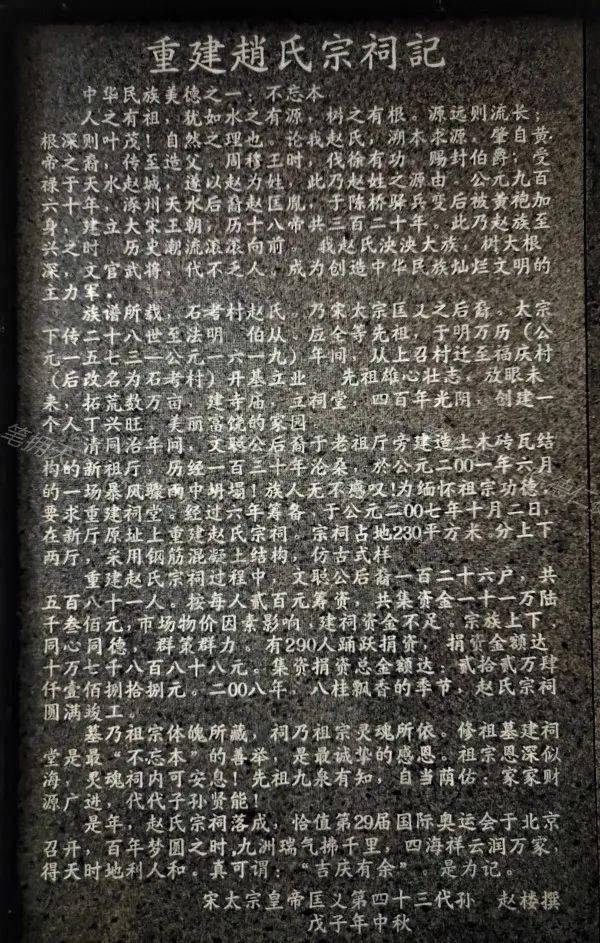 重建趙氏宗祠記
中华民族美德之一：不忘本
人之有祖，犹如水之有源，树之有根。源远则流长；
根深则叶茂！自然之理也。论我赵氏，溯本求源，肇自黄
帝之裔，传至造父，周穆王时，伐徐有功，赐封伯爵；受
禄于天水赵城，遂以赵为姓，此乃赵姓之源由。公元九百
六十年，涿州天水后裔赵匡胤，于陈桥驿兵变后被黄袍加
身，建立大宋王朝，历十八帝共三百二十年。此乃赵族至
兴之时　历史潮流滚滚向前。我赵氏泱泱大族，树大根
深，文官武将，代不乏人，成为创造中华民族灿烂文明的
主力军。
族谱所载，石考村赵氏。乃宋太宗匡义之后裔。太宗
下传二十八世至法明　伯从。应全等先祖，于明万历（公
元一五七三—公元一六一九）年间，从上召村迁至福庆村
（后改名为石考村）开基立业　先祖雄心壮志。放眼未
来，拓荒数万亩，建寺庙，立祠堂，四百年光阴，创建一
个人丁兴旺　美丽富饶的家园
清同治年间，文聪公后裔于老祖厅旁建造土木砖瓦结
构的新祖厅，历经一百三十年沧桑，於公元二00一年六月
的一场暴风骤雨中坍塌！族人无不感叹！为缅怀祖宗功德，
要求重建祠堂。经过六年筹备，于公元二00七年十月二日，
在新厅原址上重建赵氏宗祠。宗祠占地230平方米，分上下
两厅，采用钢筋混凝土结构，仿古式样
重建赵氏宗祠过程中，文聪公后裔一百二十六户，共
五百八十一人。按每人贰百元筹资，共集资金一十一万陆
千叁佰元，市场物价因素影响，建祠资金不足。宗族上下，
同心同德，群策群力。有290人踊跃捐资，捐资金额达
十万七千八百八十八元。集资捐资总金额达：贰拾贰万肆
仟壹佰捌拾捌元。二00八年，八桂飘香的季节，赵氏宗祠
圆满竣工。
墓乃祖宗体魄所藏，祠乃祖宗灵魂所依。修祖墓建祠
堂是最“不忘本”的善举，是最诚挚的感恩。祖宗恩深似
海，灵魂祠内可安息！先祖九泉有知，自当荫佑：家家财
源广进，代代子孙贤能！
是年，赵氏宗祠落成，恰值第29届国际奥运会于北京
召开，百年梦圆之时，九洲瑞气拂千里，四海祥云润万家，
得天时地利人和。真可谓：“吉庆有余”。是为记。
宋太宗皇帝匡义第四十三代孙　赵楼撰
戊子年中秋